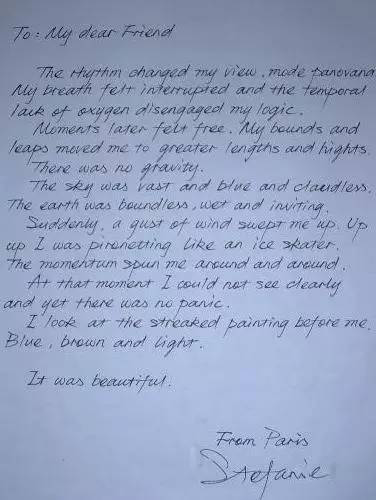 To: My dear Friend
The rhythm changed my view, made panorama
My breath felt interrupted and the temporal
lack of oxygen disengaged my logic.
Moments later felt free. My bounds and
leaps moved me to greater lengths and hights.
There was no gravity.
The sky was vast and blue and claudless.
The earth was boundless, wet and inviting.
Suddenly, a gust of wind swept me up. Up
up I was pironetting like an ice skater.
The momentum spun me around and around.
At that moment I could not see clearly
and yet there was no panic.
I look at the streaked painting before me.
Blue, brown and light.
It was beautiful.
From Paris
Stefanie